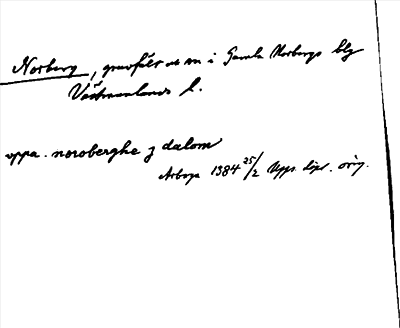 Norberg, gruvfält o. s. v. i Gamla Norbergs blg
Västmanlands l.
oppa. noroberghe j dalom
Arboga 1384 25/2 Upps. dipl. orig.